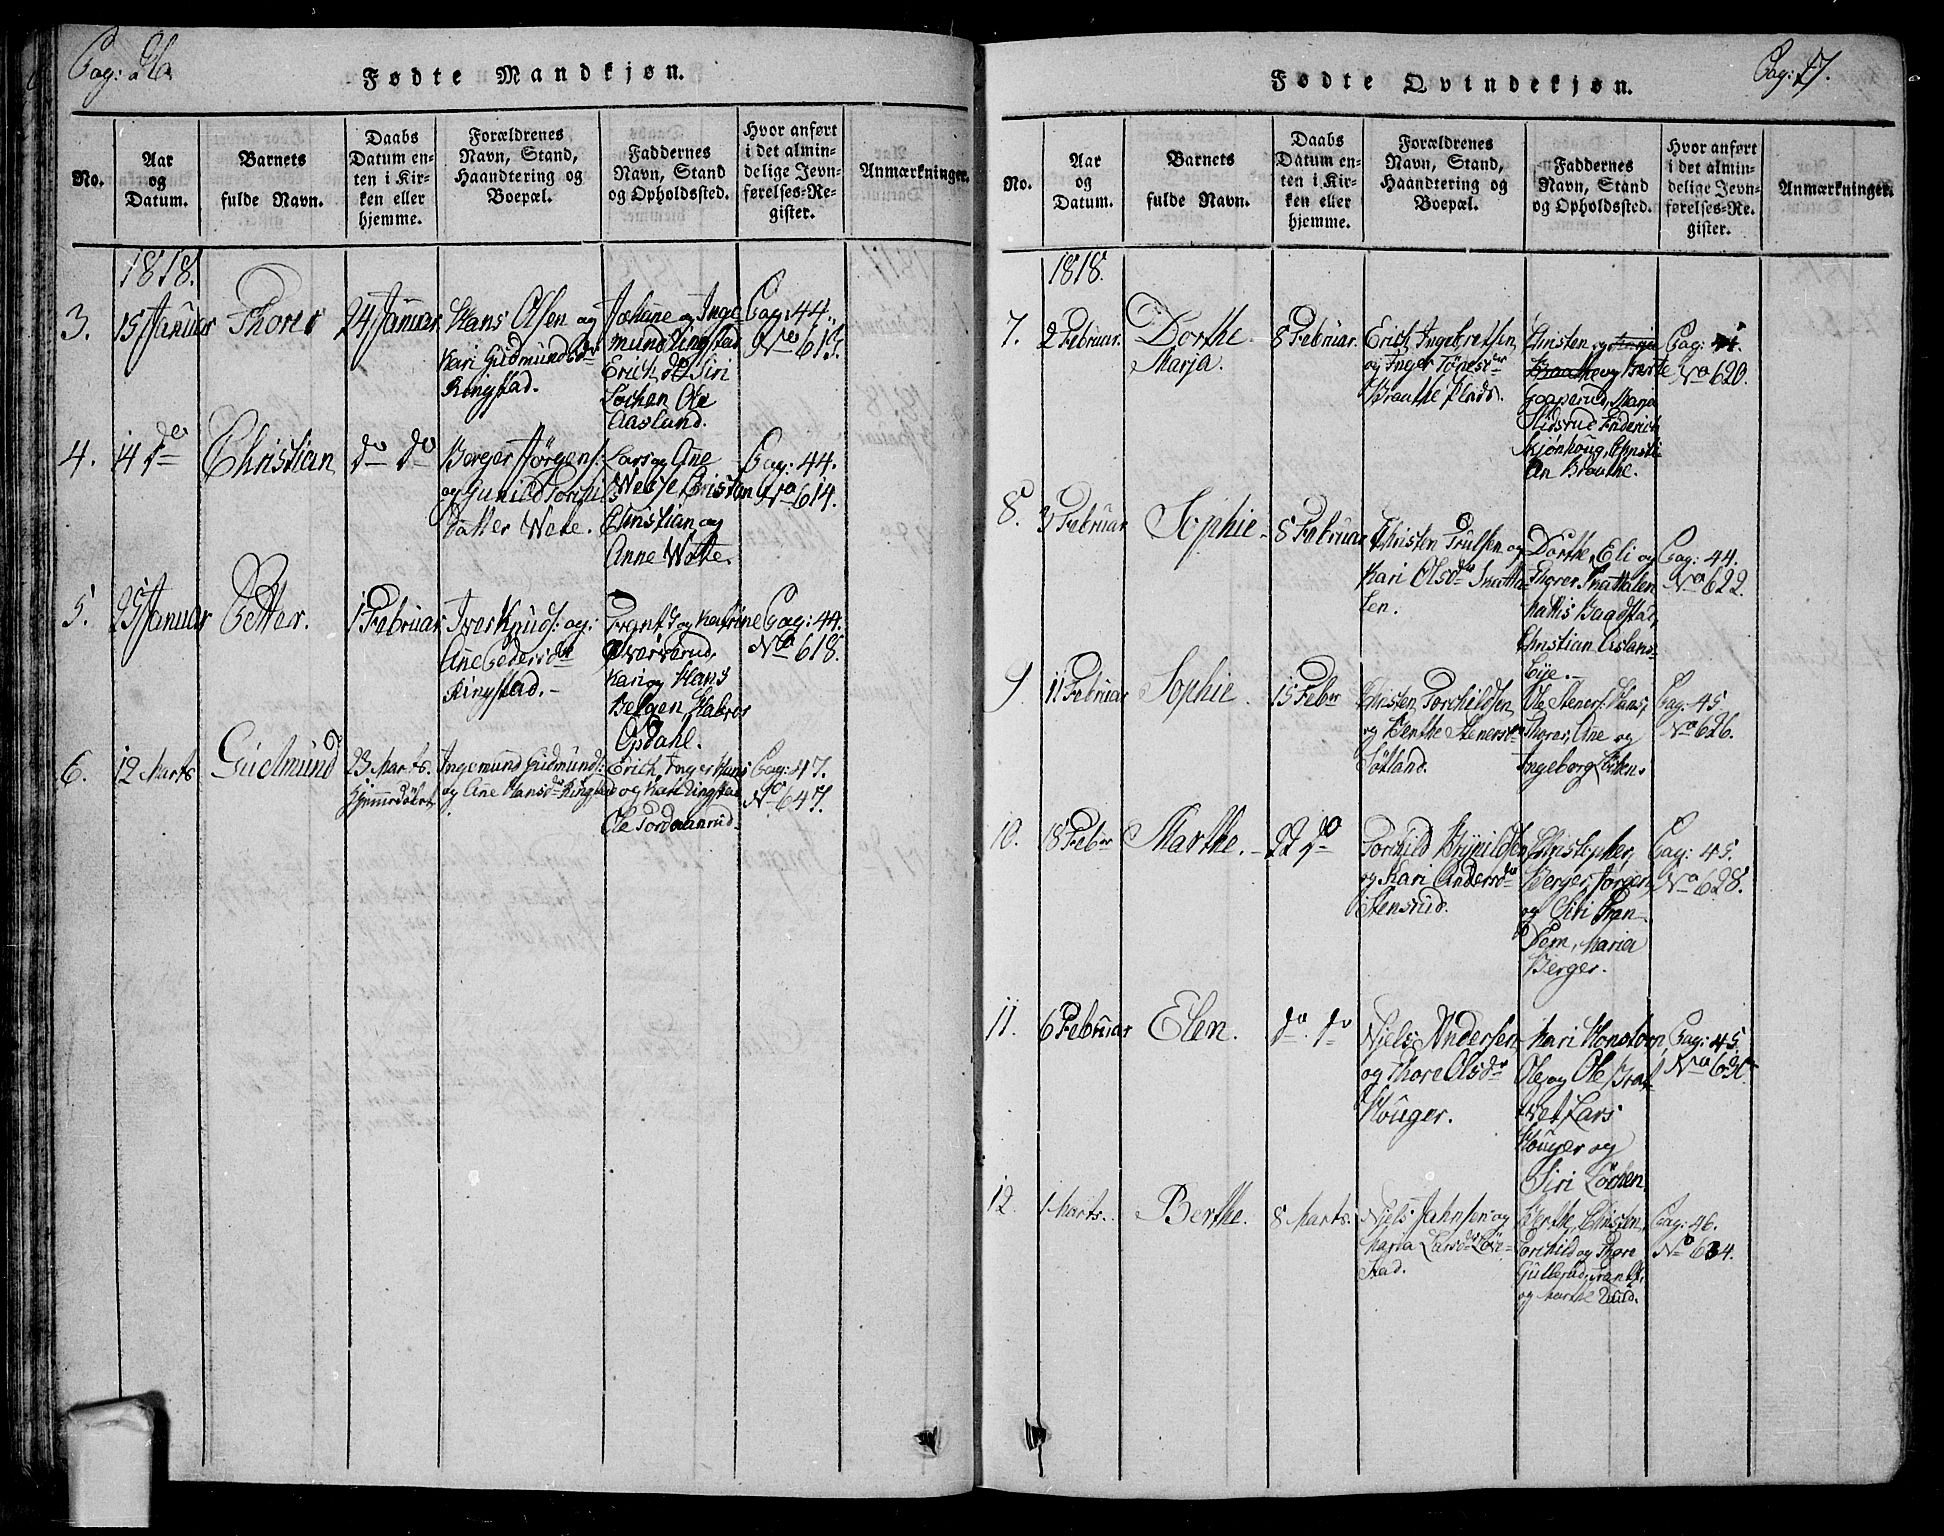 Pag: 26.
Fødte Mandkjøn.
No.
Aar
og
Datum.
Barnets
fulde Navn.
Daabs
Datum en-
ten i Kir-
ken eller
hjemme.
Forældrenes
Navn, Stand,
Haandtering og
Boepæl.
Faddernes
Navn, Stand
og Opholdssted.
Hvor anført
i det almin-
delige Jevn-
førelses-Re-
gister.
Anmærkninger.
1818.
3.
15 Januar
Thorer
24 Januar
Hans Olsen og
Kari Gudmundsdr
Ringstad.
og Inge
mund Ringstad
Erich do Siri
Lochen Ole
Aasland.
Pag: 44.
No 613.
4.
14 do
Christian
do do
Berger Jørgens:
og Gunild Torchils
datter Wete.
Lars og Ane
Christian og
Anne Wette.
Pag: 44.
No 614.
5.
25 Januar
Petter.
1 Februar
Iver Knuds: og
Ane Pedersdr
Ringstad.
og Katrine
Kari og Hans
Opdahl.
Pag: 44.
No 618.
6.
12 Marts
Gudmund
23 Marts.
Hjemmedøbt
Ingemund Gudmunds:
og Ane Hansdr Ringstad
Erich, Inger Hans
og Kari Ringstad
Ole
Pag: 47.
No 647.
Pag: 27.
Fødte Qvindekjøn.
No.
Aar
og
Datum.
Barnets
fulde Navn.
Daabs
Datum en-
ten i Kir-
ken eller
hjemme.
Forældrenes
Navn, Stand,
Haandtering og
Boepæl.
Faddernes
Navn, Stand
og Opholdssted.
Hvor anført
i det almin-
delige Jevn-
førelses-Re-
gister.
Anmærkninger.
1818.
7.
2 Februar.
Dorthe
Marja.
8 Februar.
Erich Ingebretsen
og Inger
Braathe Plads.
Christen og
Braathe og Berte
Marja
Christi
an Braathe.
Pag: 44.
No 620.
8.
3 Februar
Sophie
8 Februar
Christen Trulsen og
Kari Olsdr Snatta
len.
Dorthe, Eli og
Thorer Snattalen
Christian Aslans-
bye.
Pag: 44.
No 622.
9.
11 Februar
Sophie
15 Febr
Christen Torchildsen
og Berthe Stenersdr
Søtland.
Ole Steners: Hans,
Thorer, Ane og
Ingeborg
Pag: 45.
No 626.
10.
18 Febr
Marthe.
22 do
Torchild
og Kari Andersdr
Stensrud.
Christopher,
Berger, Jørgen
og Siri Tran-
dem, Maria
Berger.
Pag: 45.
No 628.
11.
6 Februar
Elen.
do do
Niels Andersen
og Thore Olsdr
Houger.
Kari
Ole og Ole
Lars
Houger og
Siri Lochen.
Pag: 45.
No 630.
12.
1 Marts.
Berthe.
8 Marts.
Niels Jahnsen og
Maria Larsdr
stad.
Berthe, Christen,
Torchild og Thore
Gullerud,
og Marthe
Pag: 46.
No 634.